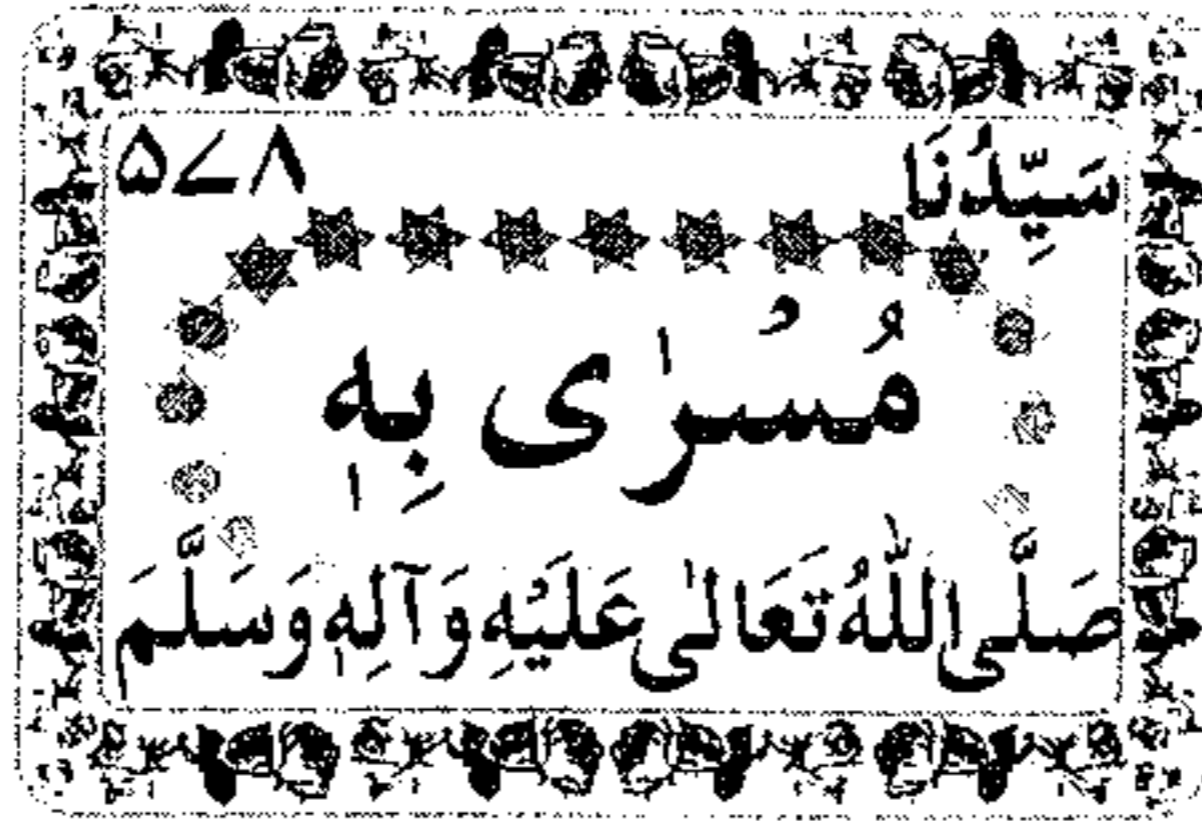 سَيِّدُنَا ۵۷۸
مُسْرٰی بِهٖ
صَلَّی اللّٰهُ تَعَالٰی عَلَیْهِ وَآلِهٖ وَسَلَّمَ